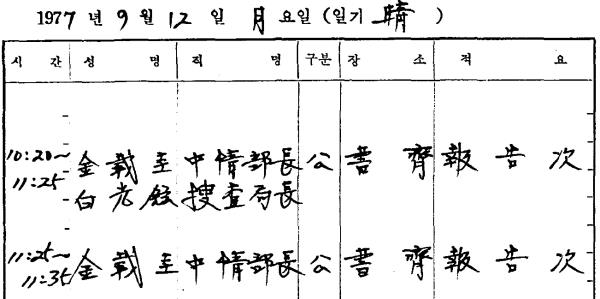 1977 년 9 월 12 일 月 요일 (일기 晴 )
시 간 성 명 직 명 구분 장 소 적 요
10:20~ 金 載 圭 中情部長 公 書 齋 報 告 次
11:25 白 光 鉉 搜查局長
11:25~ 金 載 圭 中情部長 公 書 齋 報 告 次
11:35